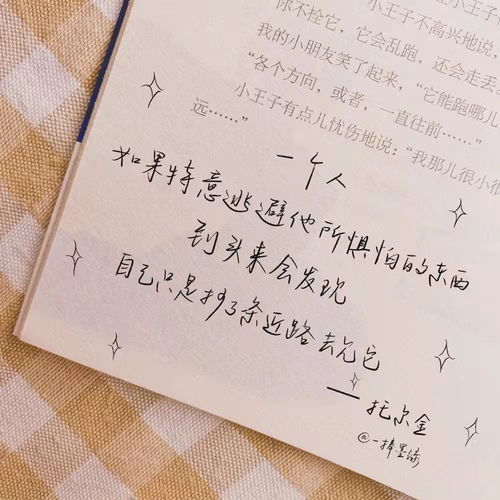 你不拴它，它会乱跑，还会走丢
小王子不高兴地说，
我的小朋友笑了起来，“它能跑哪儿
“各个方向，或者，一直往前……”
小王子有点儿忧伤地说：“我那儿很小很
远……”
一个人
如果特意逃避他所惧怕的东西
到头来会发现
自己只是抄了条近路去见它
——托尔金
@一捧墨